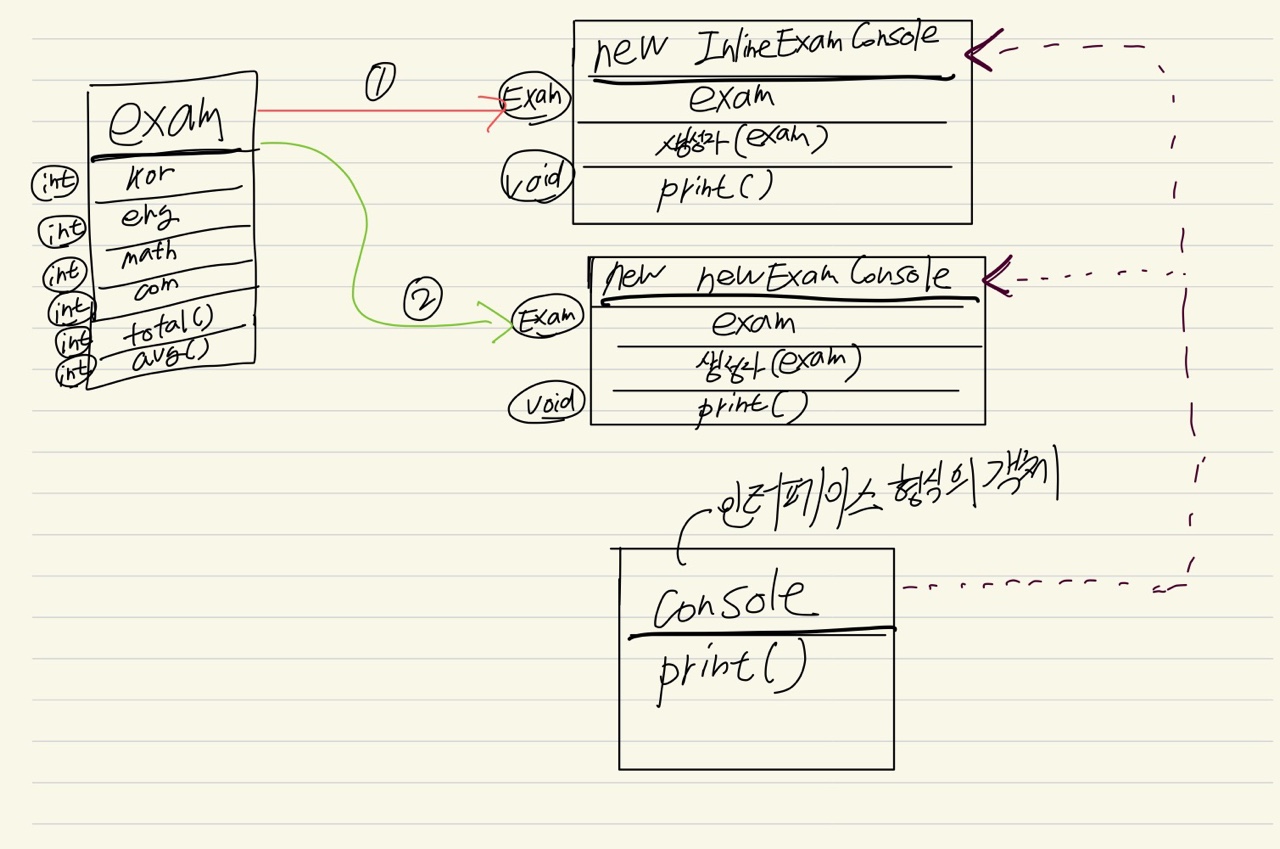 exam
int kor
int eng
int math
int com
int total()
int avg()
①
②
new InlineExamConsole
Exam exam
생성자(exam)
void print()
new newExamConsole
Exam exam
생성자(exam)
void print()
인터페이스 형식의 객체
Console
print()